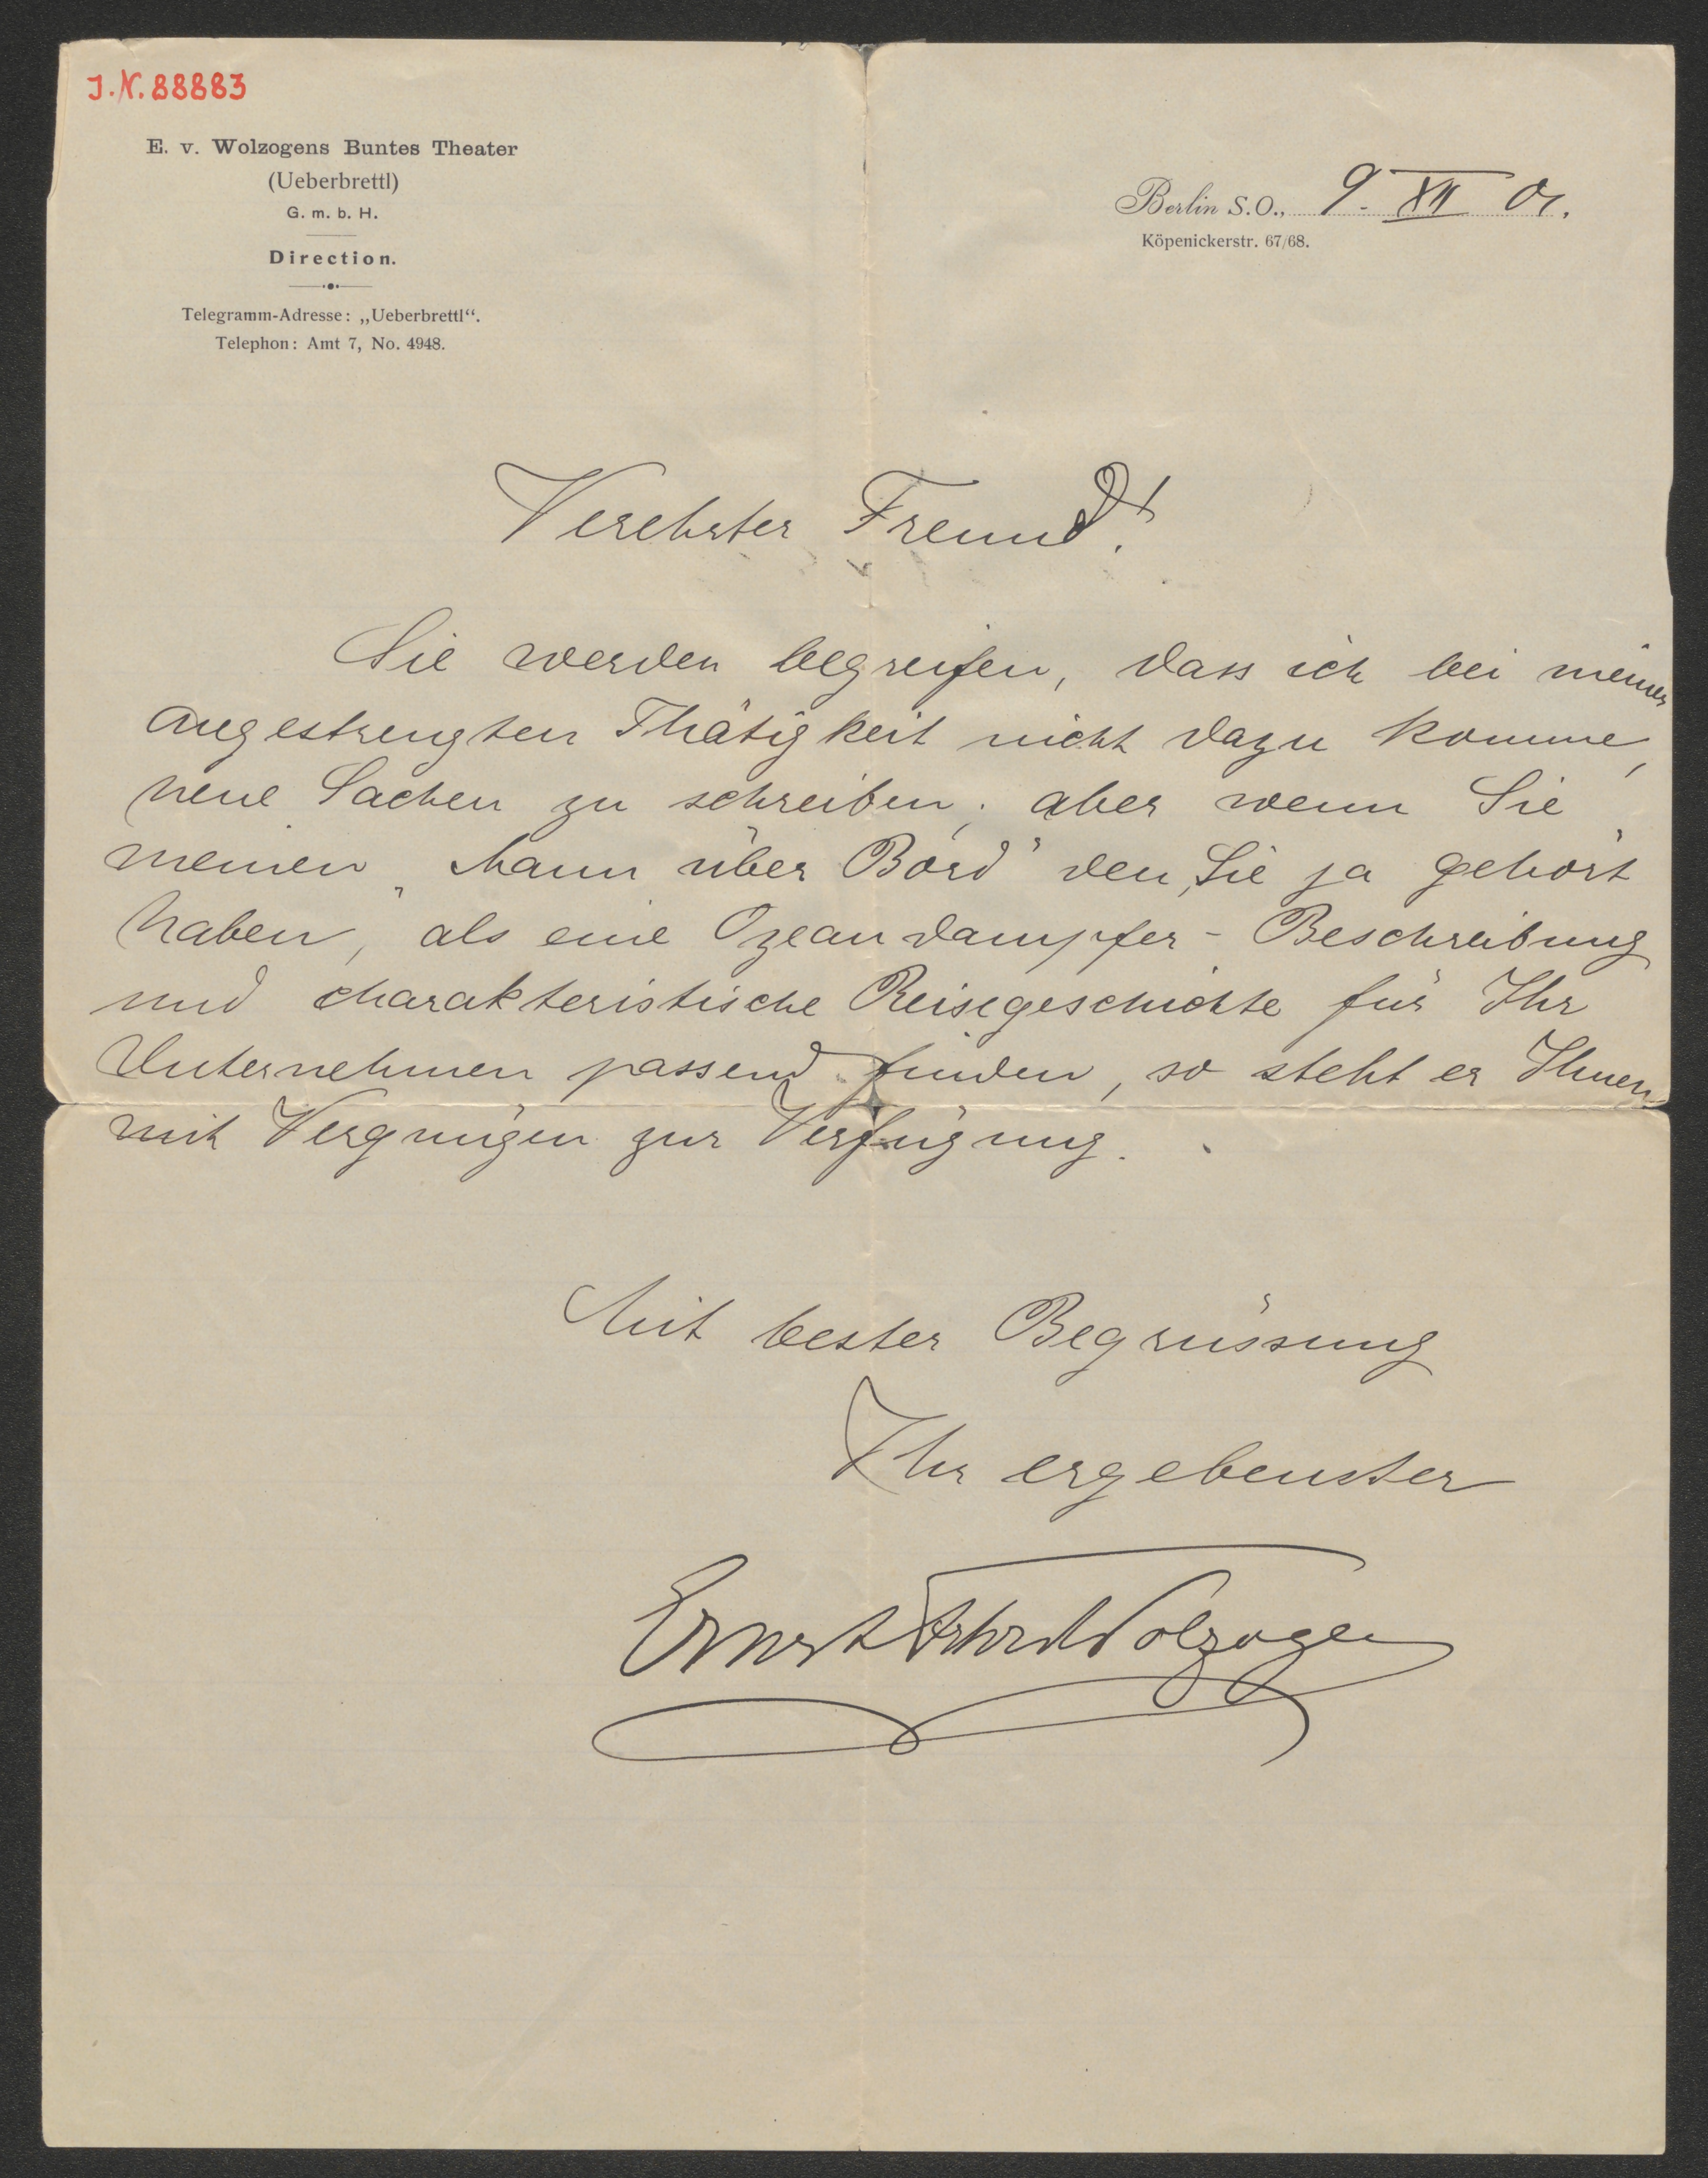 J.N. 88883
E. v. Wolzogens Buntes Theater
(Ueberbrettl)
G. m. b. H.
Direction.
Telegramm-Adresse: „Ueberbrettl“.
Telephon: Amt 7, No. 4948.
Berlin S.O., 9. XII 01.
Köpenickerstr. 67/68.
Verehrter Freund!
Sie werden begreifen, dass ich bei meiner
angestrengten Thätigkeit nicht dazu komme,
neue Sachen zu schreiben; aber wenn Sie
meinen „Mann über Bord“ den Sie ja gehört
haben, als eine Ozeandampfer-Beschreibung
und charakteristische Reisegeschichte für Ihr
Unternehmen passend finden, so steht er Ihnen
mit Vergnügen zur Verfügung.
Mit bester Begrüssung
Ihr ergebenster
Ernst Frhr v Wolzogen